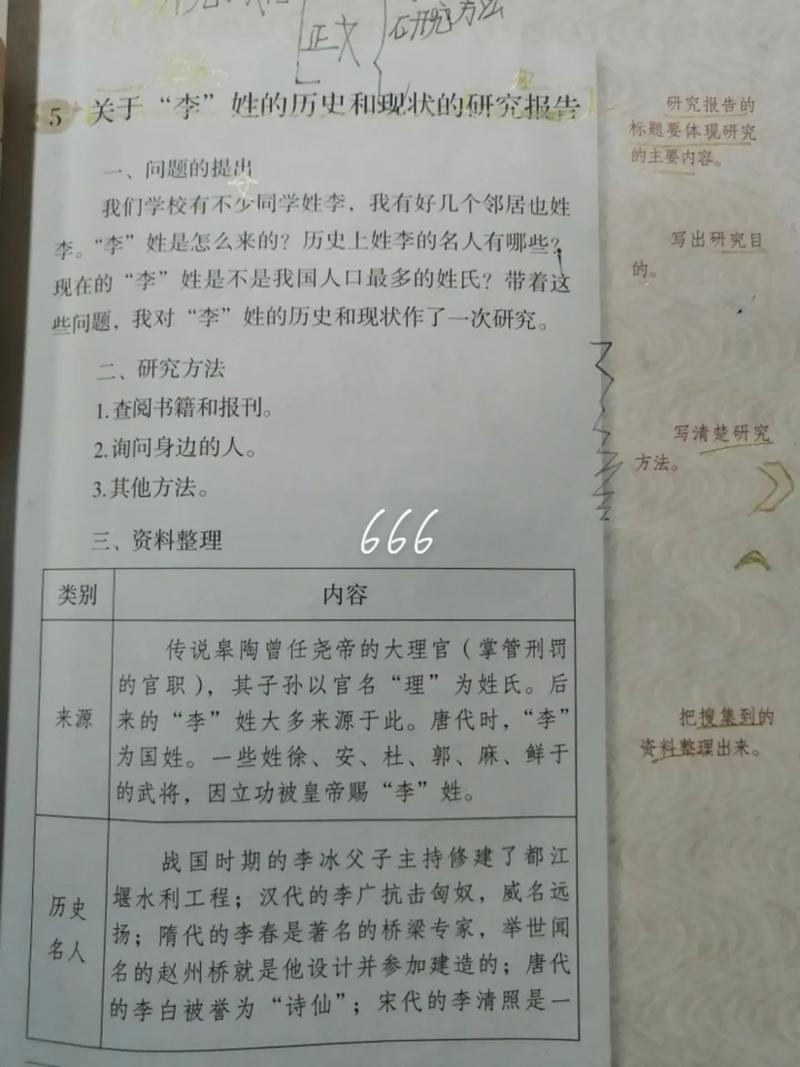 正文
研究方法
5 关于“李”姓的历史和现状的研究报告
研究报告的
标题要体现研究
的主要内容。
一、问题的提出
我们学校有不少同学姓李，我有好几个邻居也姓
李。“李”姓是怎么来的？历史上姓李的名人有哪些？
现在的“李”姓是不是我国人口最多的姓氏？带着这
些问题，我对“李”姓的历史和现状作了一次研究。
写出研究目
的。
二、研究方法
1.查阅书籍和报刊。
2.询问身边的人。
3.其他方法。
写清楚研究
方法。
三、资料整理
666
类别 内容
来源
传说皋陶曾任尧帝的大理官（掌管刑罚
的官职），其子孙以官名“理”为姓氏。后
来的“李”姓大多来源于此。唐代时，“李”
为国姓。一些姓徐、安、杜、郭、麻、鲜于
的武将，因立功被皇帝赐“李”姓。
把搜集到的
资料整理出来。
历史
名人
战国时期的李冰父子主持修建了都江
堰水利工程；汉代的李广抗击匈奴，威名远
扬；隋代的李春是著名的桥梁专家，举世闻
名的赵州桥就是他设计并参加建造的；唐代
的李白被誉为“诗仙”；宋代的李清照是一